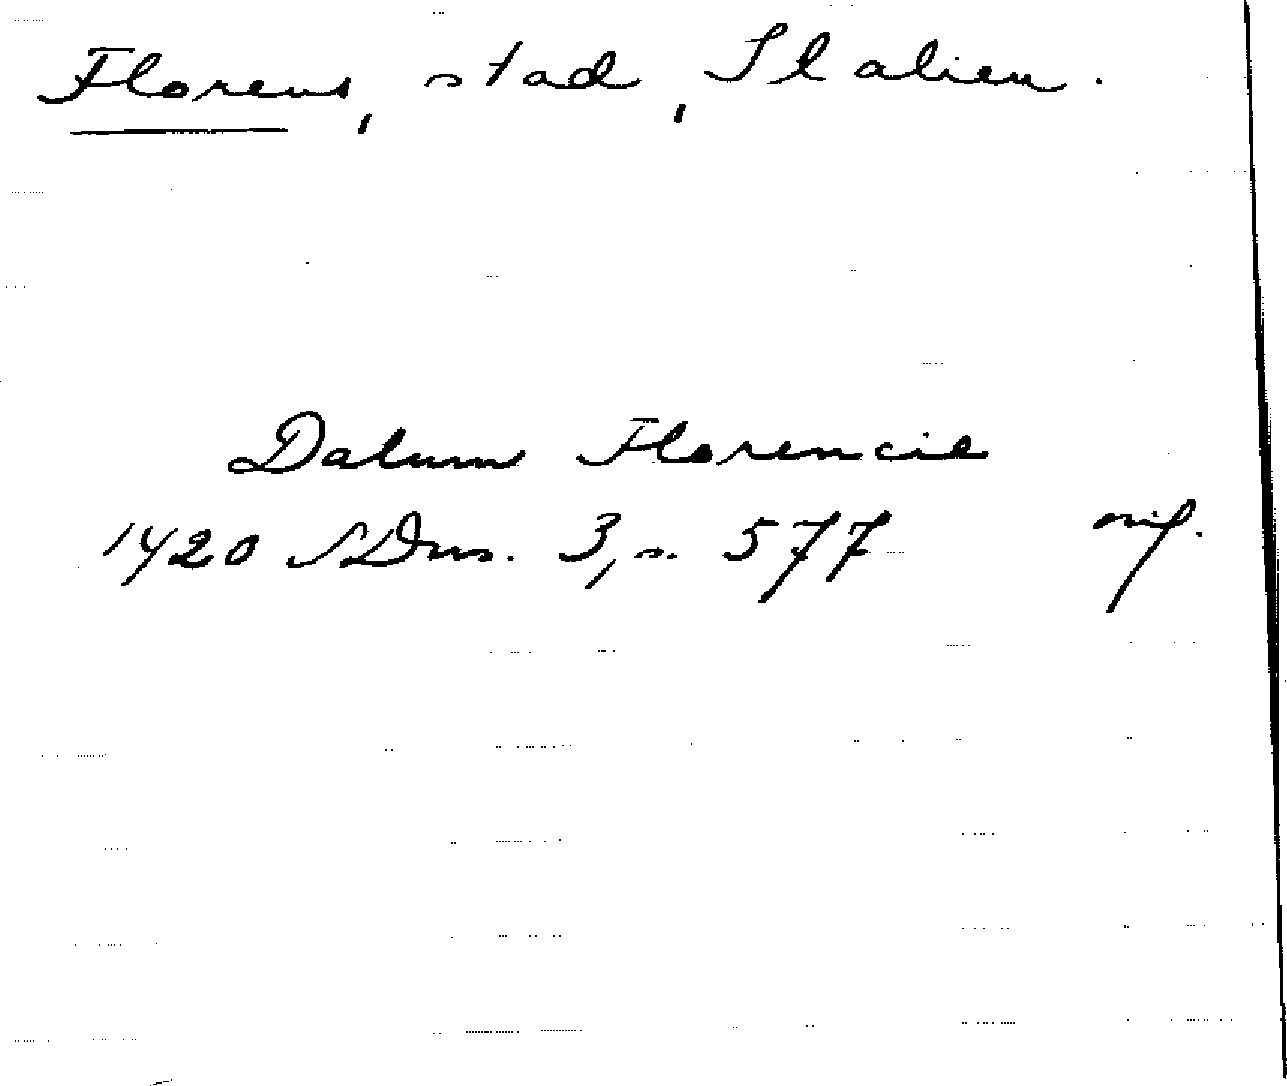 Florens, stad, Italien.
Datum Florencie
1420 SDns. 3, s. 577 orig.